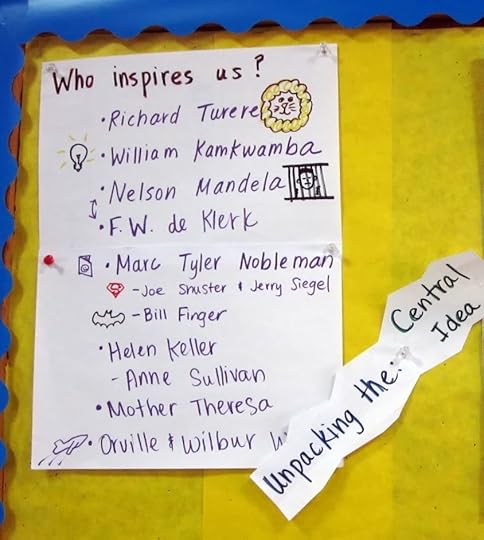 Who inspires us?
• Richard Turere
• William Kamkwamba
• Nelson Mandela
• F.W. de Klerk
• Marc Tyler Nobleman
- Joe Shuster & Jerry Siegel
- Bill Finger
• Helen Keller
- Anne Sullivan
• Mother Theresa
• Orville & Wilbur
Unpacking the:
Central
Idea